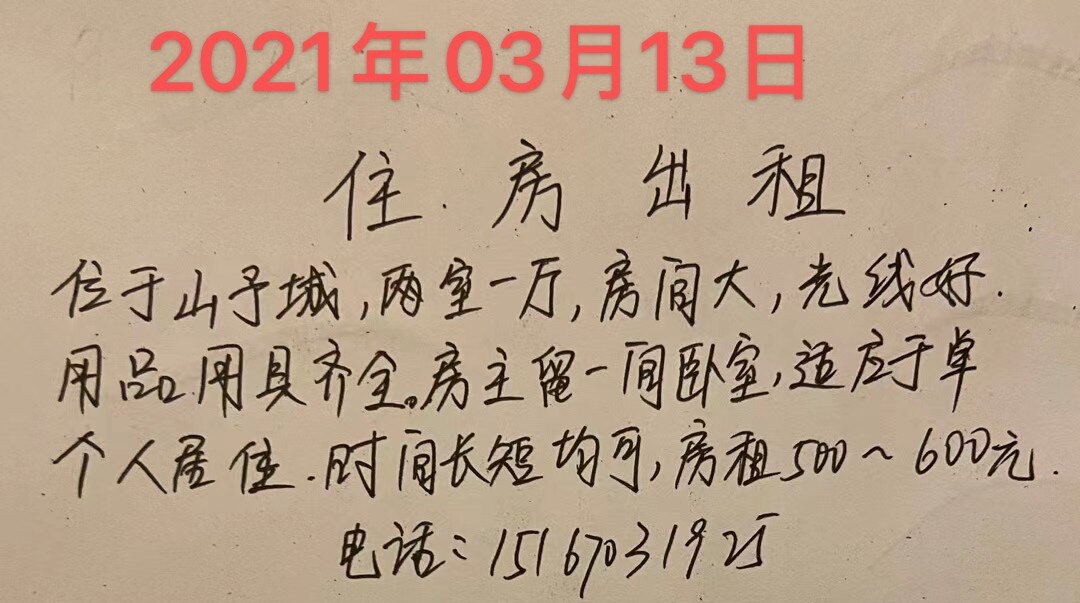 2021年03月13日
住房出租
位于山予城,两室一厅,房间大,光线好.
用品用具齐全。房主留一间卧室,适应于单
个人居住.时间长短均可,房租500~600元.
电话:15167031925